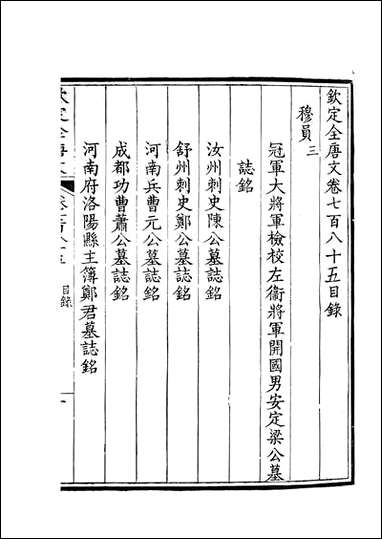 欽定全唐文卷七百八十五目錄
穆員三
冠軍大將軍檢校左衛將軍開國男安定梁公墓
誌銘
汝州刺史陳公墓誌銘
舒州刺史鄭公墓誌銘
河南兵曹元公墓誌銘
成都功曹蕭公墓誌銘
河南府洛陽縣主簿鄭君墓誌銘
欽定全唐文 卷七百八十五 目錄 一